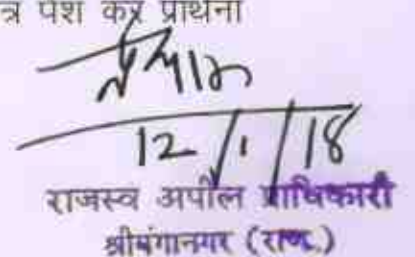 त्र पेश कर प्रार्थना
12/1/18
राजस्व अपील प्राधिकारी
श्रीगंगानगर (राज.)